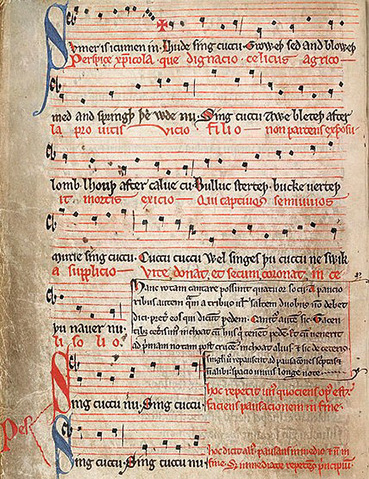 Sumer is icumen in· Lhude sing cuccu· Groweþ sed and bloweþ
Perspice xp̄icola que dignacio celicus agrico
med and springþ þe wde nu· Sing cuccu Awe bleteþ after
la pro vitis vicio filio non parcens exposu
lomb lhouþ after calue cu· Bulluc sterteþ· bucke uerteþ
it mortis exicio Qui captiuos semiuiuos
murie sing cuccu· Cuccu cuccu Wel singes þu cuccu ne swik
a supplicio Vite donat et secum coronat in ce
þu nauer nu·
li solio·
Hanc rotam cantare possunt quatuor socii· A paucio
ribus autem quam a tribus uel saltem duobus non debet
dici· preter eos qui dicunt pedem· Canitur autem sic· Tacen
tibus ceteris unus inchoat cum hiis qui tenent pedem· et cum uenerit
ad primam notam post crucem· inchoat alius· et sic de ceteris·
Sing cuccu nu· Sing cuccu·
hoc repetit unus quociens opus est
faciens pausacionem in fine·
Pes
Sing cuccu nu· Sing cuccu nu
hoc dicit alius· pausans in medio et non in
fine· Set immediate repetens principium